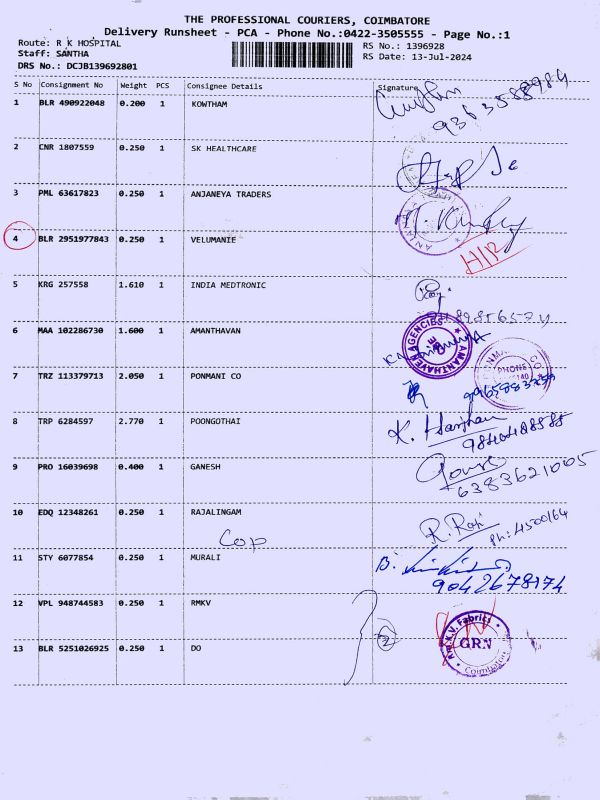 THE PROFESSIONAL COURIERS, COIMBATORE
Delivery Runsheet - PCA - Phone No.:0422-3505555 - Page No.:1
Route: R K HOSPITAL
Staff: SANTHA
DRS No.: DCJB139692801
RS No.: 1396928
RS Date: 13-Jul-2024
S No Consignment No Weight PCS Consignee Details Signature
1 BLR 490922048 0.200 1 KOWTHAM
2 CNR 1807559 0.250 1 SK HEALTHCARE
3 PML 63617823 0.250 1 ANJANEYA TRADERS
4 BLR 2951977843 0.250 1 VELUMANIE
H/R
5 KRG 257558 1.610 1 INDIA MEDTRONIC
6 MAA 102286730 1.600 1 AMANTHAVAN
AGENCIES
7 TRZ 113379713 2.050 1 PONMANI CO
PHONE
8 TRP 6284597 2.770 1 POONGOTHAI
9840408588
9 PRO 16039698 0.400 1 GANESH
6383621005
10 EDQ 12348261 0.250 1 RAJALINGAM
R. Raji
Ph: 4500164
Cop
11 STY 6077854 0.250 1 MURALI
9042678174
12 VPL 948744583 0.250 1 RMKV
2
R.M.K.V. Fabrics
GRN
Coimbatore
13 BLR 5251026925 0.250 1 DO